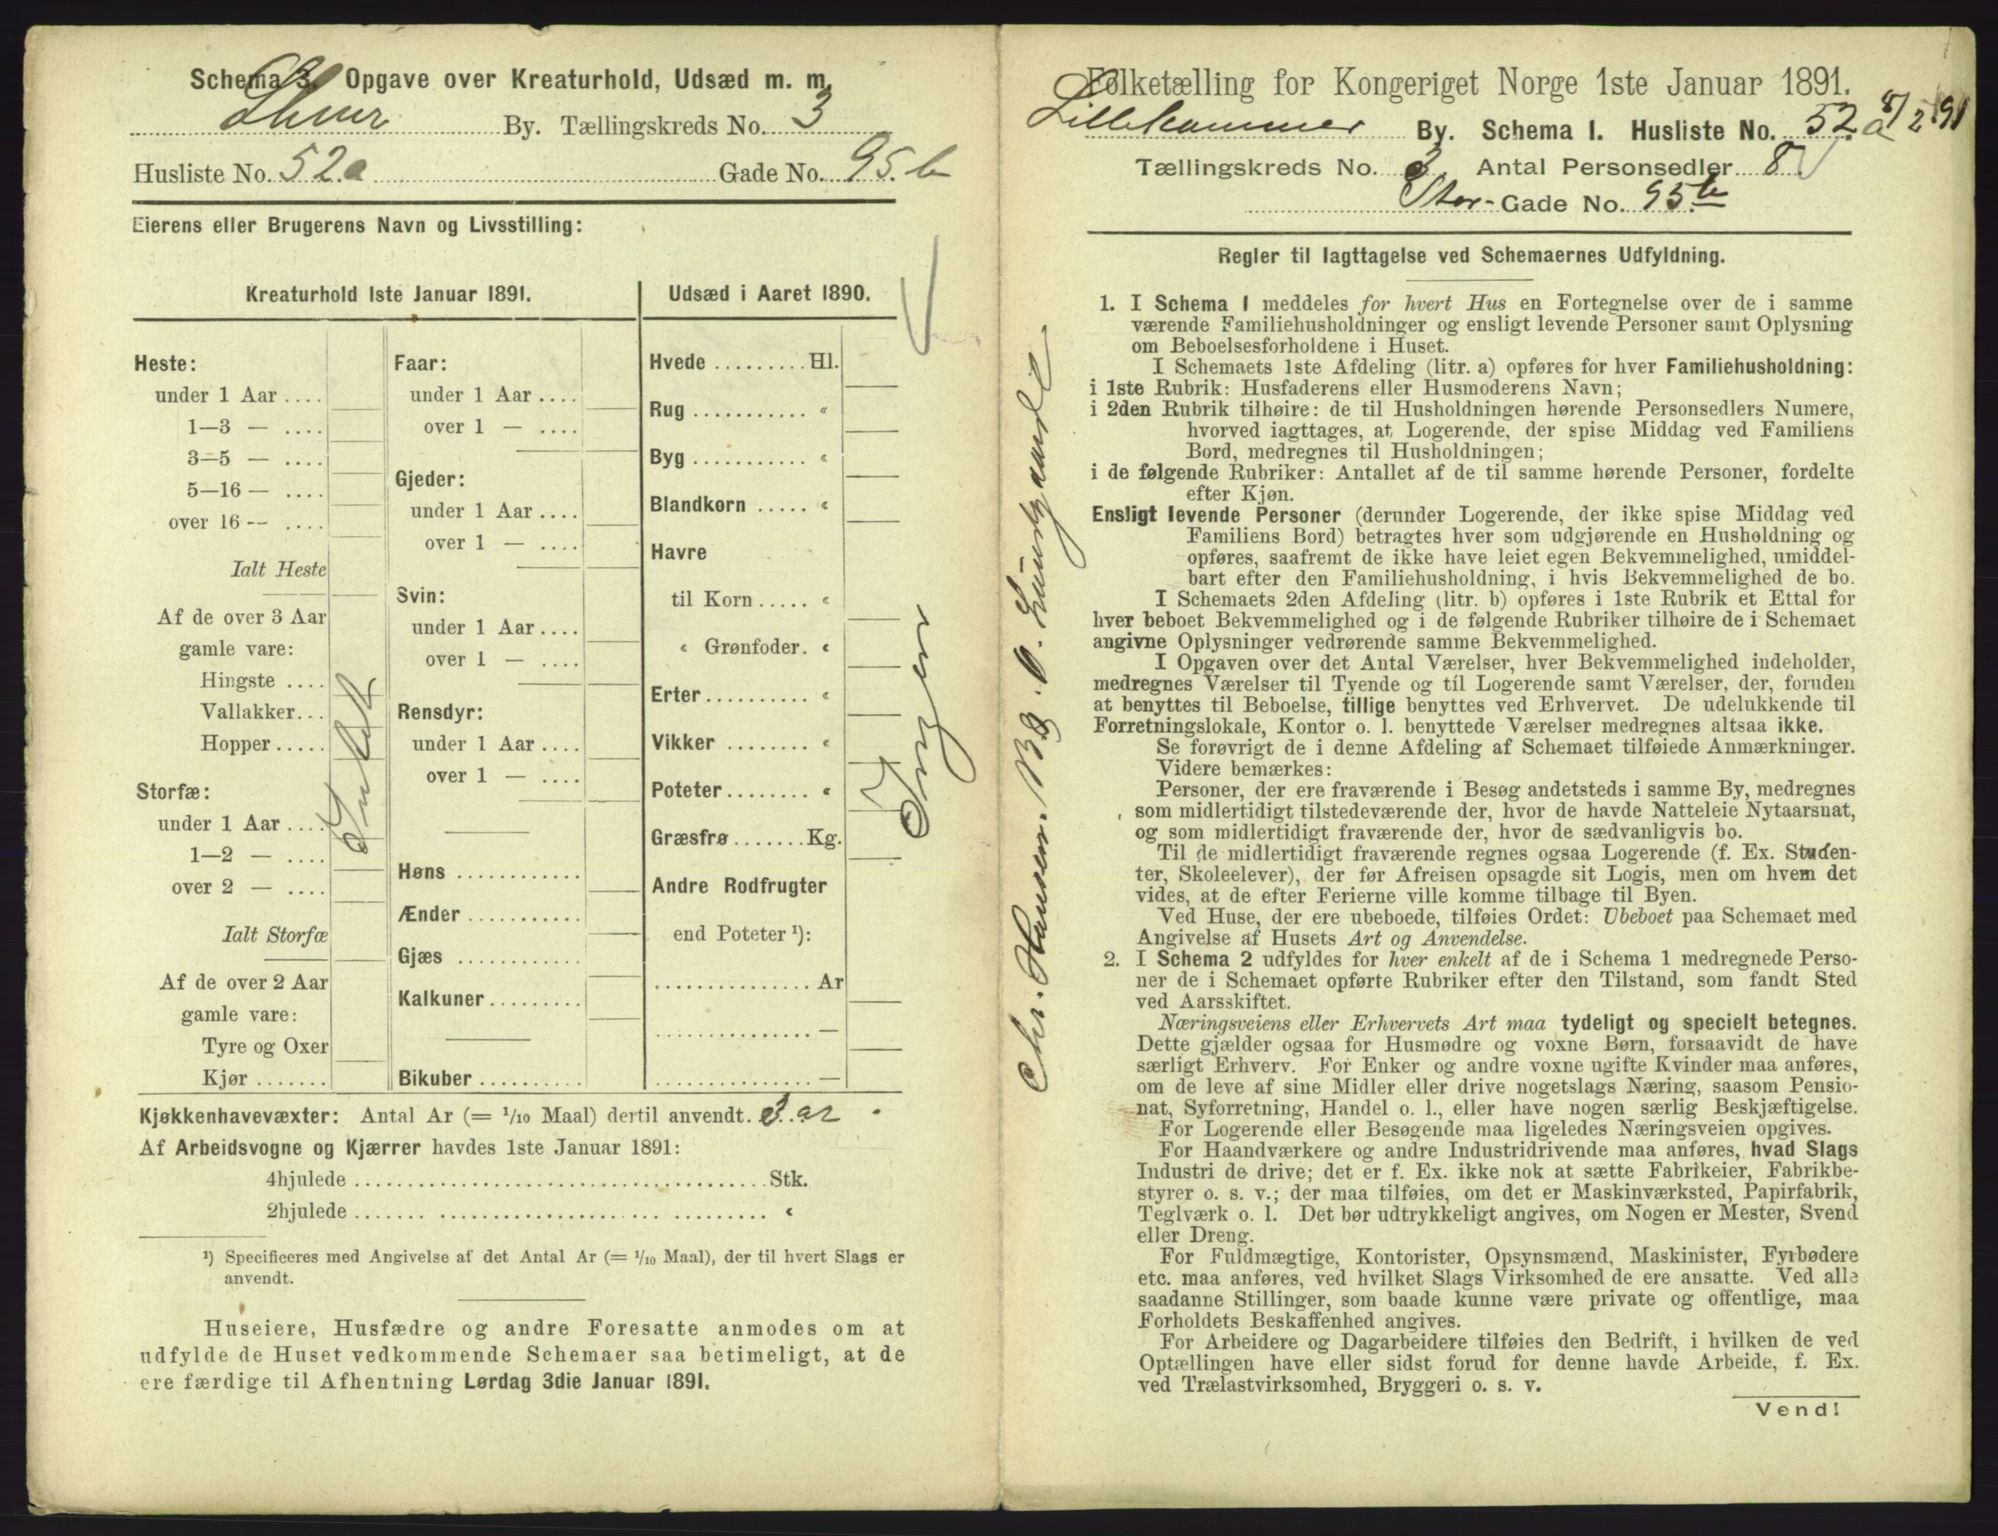 Schema 3. Opgave over Kreaturhold, Udsæd m. m.
By. Tællingskreds No. 3
Husliste No. 52 a Gade No. 95. b
Eierens eller Brugerens Navn og Livsstilling:
Kreaturhold 1ste Januar 1891.
Heste:
under 1 Aar ....
1—3 — ....
3—5 — ....
5—16 — ....
over 16 — ....
Ialt Heste
Af de over 3 Aar
gamle vare:
Hingste ....
Vallakker...
Hopper.....
Storfæ:
under 1 Aar ....
1—2 — ....
over 2 — ....
Ialt Storfæ
Af de over 2 Aar
gamle vare:
Tyre og Oxer
Kjør .......
Faar:
under 1 Aar ....
over 1 — ....
Gjeder:
under 1 Aar ....
over 1 — ....
Svin:
under 1 Aar ....
over 1 — ....
Rensdyr:
under 1 Aar ....
over 1 — ....
Høns ............
Ænder ...........
Gjæs ............
Kalkuner.........
Bikuber ..........
Udsæd i Aaret 1890.
Hvede .........Hl.
Rug ........... «
Byg ........... «
Blandkorn ..... «
Havre
til Korn ..... «
« Grønfoder. «
Erter.......... «
Vikker ........ «
Poteter........ «
Græsfrø.......Kg.
Andre Rodfrugter
end Poteter ¹):
...............Ar
............... —
............... —
Ingen
Kjøkkenhavevæxter: Antal Ar (= 1/10 Maal) dertil anvendt. 3 ar
Af Arbeidsvogne og Kjærrer havdes 1ste Januar 1891:
4hjulede ......................................Stk.
2hjulede ....... .................... ......... «
¹) Specificeres med Angivelse af det Antal Ar (= 1/10 Maal), der til hvert Slags er
anvendt.
Huseiere, Husfædre og andre Foresatte anmodes om at
udfylde de Huset vedkommende Schemaer saa betimeligt, at de
ere færdige til Afhentning Lørdag 3die Januar 1891.
Folketælling for Kongeriget Norge 1ste Januar 1891.
Lillehammer By. Schema I. Husliste No. 52. a 8/2 91
Tællingskreds No. 3 Antal Personsedler 8
Stor- Gade No. 95. b
Regler til Iagttagelse ved Schemaernes Udfyldning.
1. I Schema 1 meddeles for hvert Hus en Fortegnelse over de i samme
værende Familiehusholdninger og ensligt levende Personer samt Oplysning
om Beboelsesforholdene i Huset.
I Schemaets 1ste Afdeling (litr. a) opføres for hver Familiehusholdning:
i 1ste Rubrik: Husfaderens eller Husmoderens Navn;
i 2den Rubrik tilhøire: de til Husholdningen hørende Personsedlers Numere,
hvorved iagttages, at Logerende, der spise Middag ved Familiens
Bord, medregnes til Husholdningen;
i de følgende Rubriker: Antallet af de til samme hørende Personer, fordelte
efter Kjøn.
Ensligt levende Personer (derunder Logerende, der ikke spise Middag ved
Familiens Bord) betragtes hver som udgjørende en Husholdning og
opføres, saafremt de ikke have leiet egen Bekvemmelighed, umiddel-
bart efter den Familiehusholdning, i hvis Bekvemmelighed de bo.
I Schemaets 2den Afdeling (litr. b) opføres i 1ste Rubrik et Ettal for
hver beboet Bekvemmelighed og i de følgende Rubriker tilhøire de i Schemaet
angivne Oplysninger vedrørende samme Bekvemmelighed.
I Opgaven over det Antal Værelser, hver Bekvemmelighed indeholder,
medregnes Værelser til Tyende og til Logerende samt Værelser, der, foruden
at benyttes til Beboelse, tillige benyttes ved Erhvervet. De udelukkende til
Forretningslokale, Kontor o. l. benyttede Værelser medregnes altsaa ikke.
Se forøvrigt de i denne Afdeling af Schemaet tilføiede Anmærkninger.
Videre bemærkes:
Personer, der ere fraværende i Besøg andetsteds i samme By, medregnes
som midlertidigt tilstedeværende der, hvor de havde Natteleie Nytaarsnat,
og som midlertidigt fraværende der, hvor de sædvanligvis bo.
Til de midlertidigt fraværende regnes ogsaa Logerende (f. Ex. Studen-
ter, Skoleelever), der før Afreisen opsagde sit Logis, men om hvem det
vides, at de efter Ferierne ville komme tilbage til Byen.
Ved Huse, der ere ubeboede, tilføies Ordet: Ubeboet paa Schemaet med
Angivelse af Husets Art og Anvendelse.
2. I Schema 2 udfyldes for hver enkelt af de i Schema 1 medregnede Perso-
ner de i Schemaet opførte Rubriker efter den Tilstand, som fandt Sted
ved Aarsskiftet.
Næringsveiens eller Erhvervets Art maa tydeligt og specielt betegnes.
Dette gjælder ogsaa for Husmødre og voxne Børn, forsaavidt de have
særligt Erhverv. For Enker og andre voxne ugifte Kvinder maa anføres,
om de leve af sine Midler eller drive nogetslags Næring, saasom Pensio-
nat, Syforretning, Handel o. l., eller have nogen særlig Beskjæftigelse.
For Logerende eller Besøgende maa ligeledes Næringsveien opgives.
For Haandværkere og andre Industridrivende maa anføres, hvad Slags
Industri de drive; det er f. Ex. ikke nok at sætte Fabrikeier, Fabrikbe-
styrer o. s. v.; der maa tilføies, om det er Maskinværksted, Papirfabrik,
Teglværk o. l. Det bør udtrykkeligt angives, om Nogen er Mester, Svend
eller Dreng.
For Fuldmægtige, Kontorister, Opsynsmænd, Maskinister, Fyrbødere
etc. maa anføres, ved hvilket Slags Virksomhed de ere ansatte. Ved alle
saadanne Stillinger, som baade kunne være private og offentlige, maa
Forholdets Beskaffenhed angives.
For Arbeidere og Dagarbeidere tilføies den Bedrift, i hvilken de ved
Optællingen have eller sidst forud for denne havde Arbeide, f. Ex.
ved Trælastvirksomhed, Bryggeri o. s. v.
Vend!
Chr. Hansen.